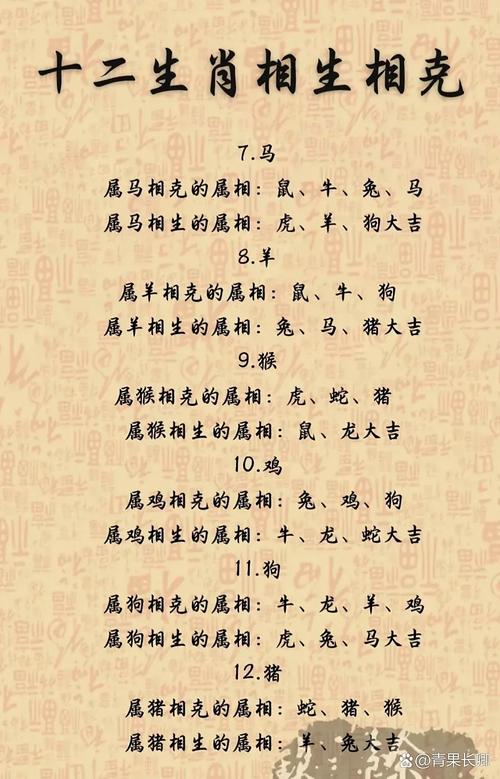 十二生肖相生相克
7.马
属马相克的属相：鼠、牛、兔、马
属马相生的属相：虎、羊、狗大吉
8.羊
属羊相克的属相：鼠、牛、狗
属羊相生的属相：兔、马、猪大吉
9.猴
属猴相克的属相：虎、蛇、猪
属猴相生的属相：鼠、龙大吉
10.鸡
属鸡相克的属相：兔、鸡、狗
属鸡相生的属相：牛、龙、蛇大吉
11.狗
属狗相克的属相：牛、龙、羊、鸡
属狗相生的属相：虎、兔、马大吉
12.猪
属猪相克的属相：蛇、猪、猴
属猪相生的属相：羊、兔大吉
@青果长卿